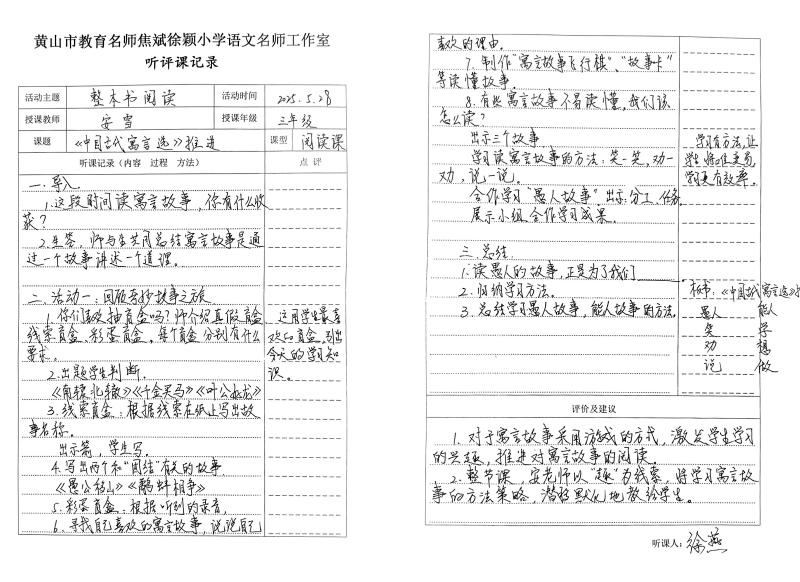 黄山市教育名师焦斌徐颖小学语文名师工作室
听评课记录
活动主题 整本书阅读 活动时间 2025.5.28
授课教师 安雪 授课年级 三年级
课题 《中国古代寓言选》推进 课型 阅读课
听课记录（内容 过程 方法） 点评
一.导入
1.这段时间读寓言故事，你有什么收
获？
2.生答，师与生共同总结寓言故事是通
过一个故事讲述一个道理。
二.活动一：回顾奇妙故事之旅
1.你们喜欢抽盲盒吗？师介绍真假盲盒
线索盲盒，彩蛋盲盒，每个盲盒分别有什么
要求。
这用学生最喜
欢的盲盒，引出
今天的学习知
识。
2.出题学生判断.
《南辕北辙》《千金买马》《叶公好龙》
3.线索盲盒：根据线索在纸上写出故
事名称.
出示箭，学生写.
4.写出两个和“团结”有关的故事
《愚公移山》《鹬蚌相争》
5.彩蛋盲盒：根据听到的录音,
6.寻找自己喜欢的寓言故事，说说自己
喜欢的理由.
7.制作“寓言故事飞行棋”、“故事卡”
等读懂故事.
8.有些寓言故事不易读懂，我们该
怎么读？
出示三个故事
学习读寓言故事的方法：笑一笑，劝一
劝，说一说。
学习有方法，让
学习更有效率。
合作学习“愚人故事”.出示：分工、任务
展示小组合作学习成果。
三.总结
1.读愚人的故事，正是为了我们
2.归纳学习方法.
3.总结学习愚人故事，能人故事的方法.
板书：《中国古代寓言选》
愚人 能人
笑 学
劝 想
说 做
评价及建议
1.对于寓言故事采用游戏的方式，激发学生学习
的兴趣，推进对寓言故事的阅读。
2.整节课，安老师以“趣”为线索，将学习寓言故
事的方法策略，潜移默化地教给学生。
听课人：徐燕